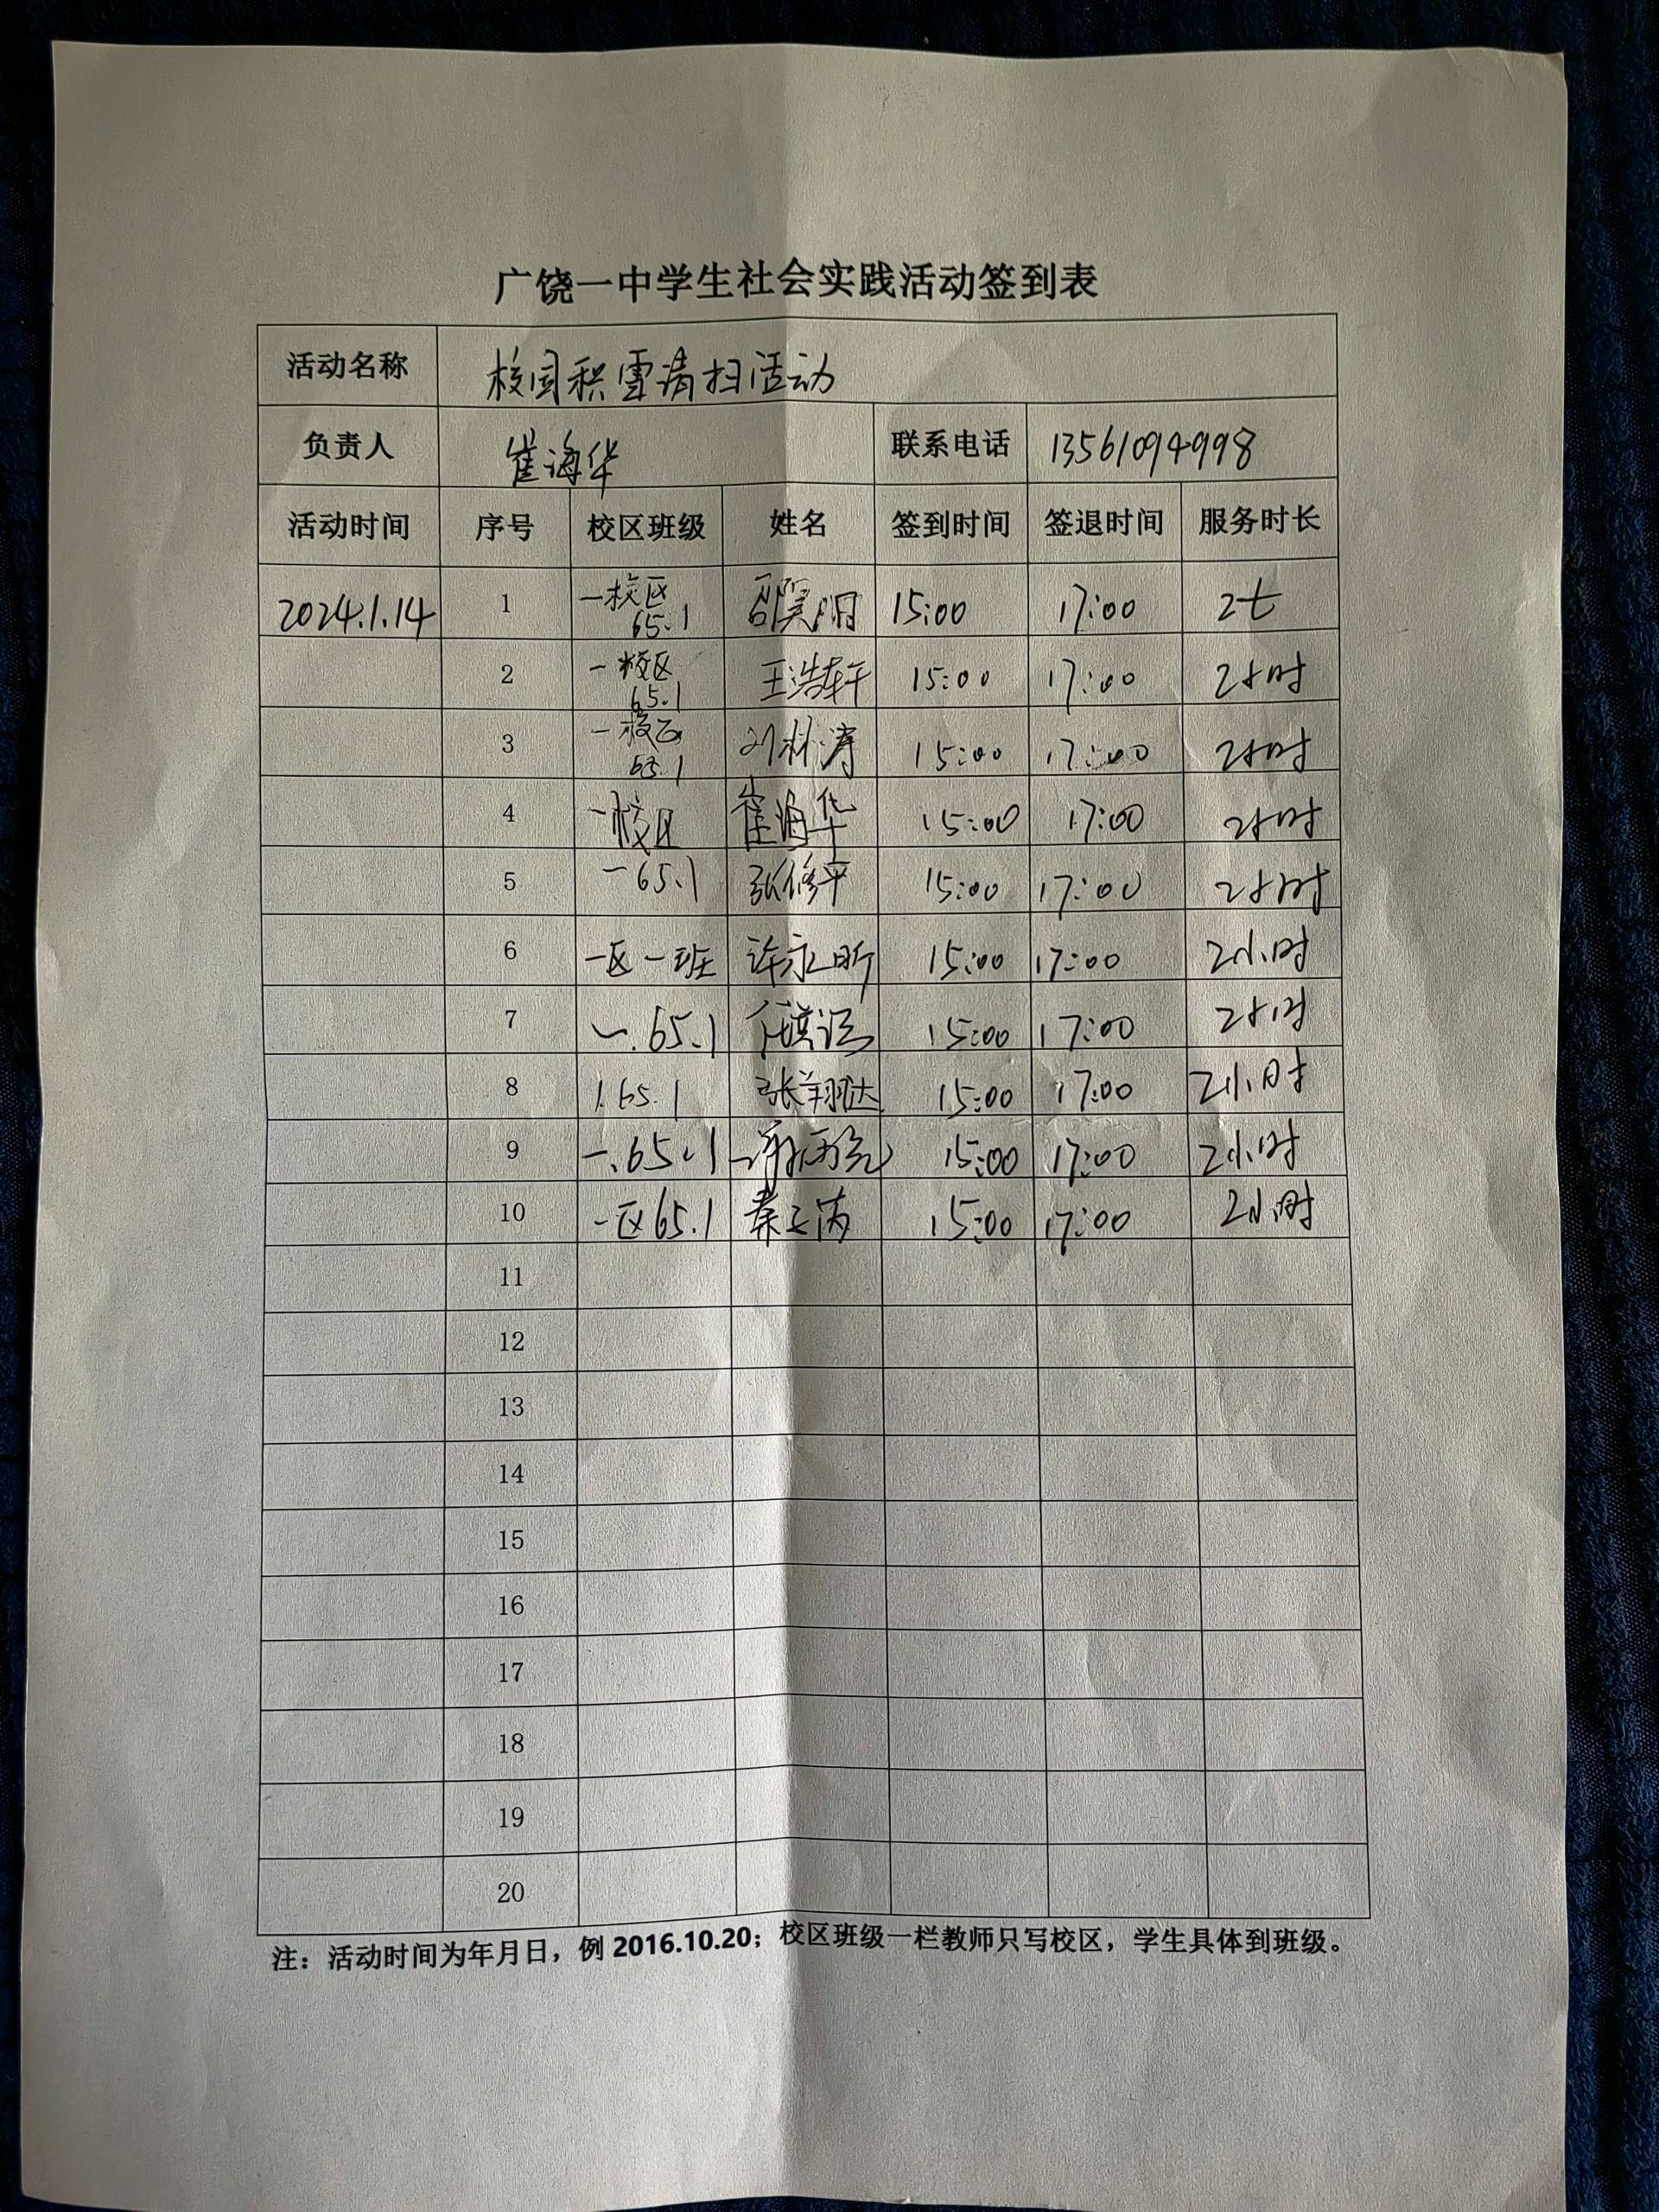 广饶一中学生社会实践活动签到表
活动名称 校园积雪清扫活动
负责人 崔海华 联系电话 13561094998
活动时间 序号 校区班级 姓名 签到时间 签退时间 服务时长
2024.1.14 1 一校区 65.1 15:00 17:00 2
2 一校区 65.1 王浩轩 15:00 17:00 2小时
3 一校区 65.1 刘林涛 15:00 17:00 2小时
4 一校区 崔海华 15:00 17:00 2小时
5 一65.1 张修平 15:00 17:00 2小时
6 一区一班 许永昕 15:00 17:00 2小时
7 一.65.1 15:00 17:00 2小时
8 1.65.1 张翔达 15:00 17:00 2小时
9 一.65.1 15:00 17:00 2小时
10 一区65.1 15:00 17:00 2小时
11
12
13
14
15
16
17
18
19
20
注：活动时间为年月日，例 2016.10.20；校区班级一栏教师只写校区，学生具体到班级。